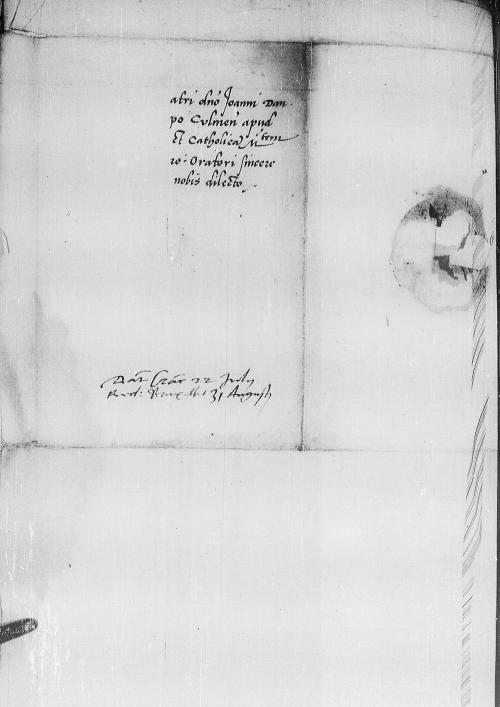 atri dno Joanni Dan
po Culmen apud
et Catholica M tem
ro: Oratori sincere
nobis dilecto.
Dat Crac 22 July
Brux 31 Augusti